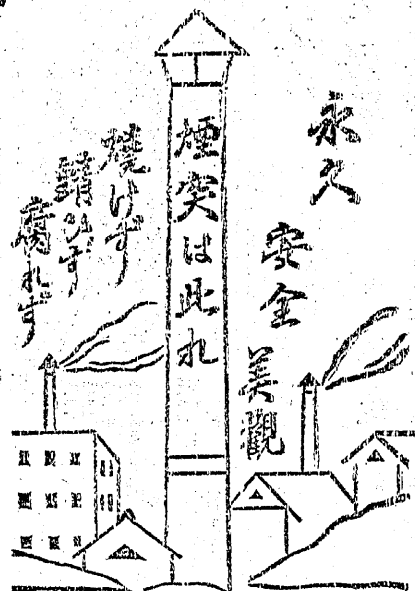 永久
安全
美觀
煙突は此れ
焼けず
錆びず
腐れず